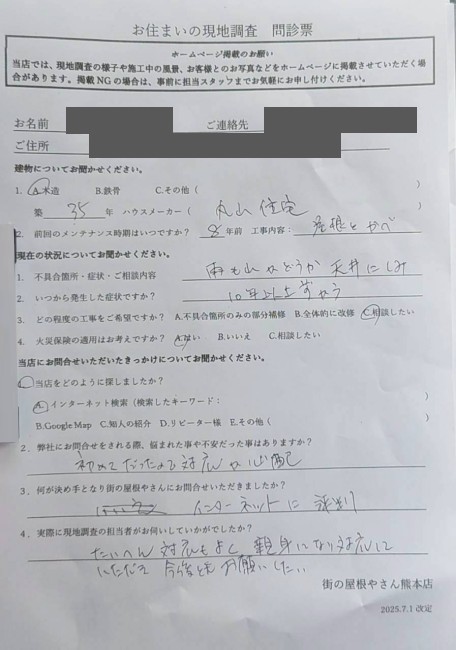 お住まいの現地調査　問診票
ホームページ掲載のお願い
当店では、現地調査の様子や施工中の風景、お客様とのお写真などをホームページに掲載させていただく場
合があります。掲載NGの場合は、事前に担当スタッフまでお気軽にお申し付けください。
お名前　ご連絡先
ご住所
建物についてお聞かせください。
1. A.木造　B.鉄骨　C.その他（　）
築 35 年　ハウスメーカー（ 丸山住宅 ）
2. 前回のメンテナンス時期はいつですか？ 8 年前　工事内容： 屋根とかべ
現在の状況についてお聞かせください。
1. 不具合箇所・症状・ご相談内容　雨もりかどうか 天井にしみ
2. いつから発生した症状ですか？　10年以上前から
3. どの程度の工事をご希望ですか？ A.不具合箇所のみの部分補修　B.全体的に改修　C.相談したい
4. 火災保険の適用はお考えですか？ A.はい　B.いいえ　C.相談したい
当店にお問合せいただいたきっかけについてお聞かせください。
1. 当店をどのように探しましたか？
A.インターネット検索（検索したキーワード：　）
B.Google Map　C.知人の紹介　D.リピーター様　E.その他（　）
2. 弊社にお問合せをされる際、悩まれた事や不安だった事はありますか？
初めてだったので対応が心配
3. 何が決め手となり街の屋根やさんにお問合せいただきましたか？
インターネットに
4. 実際に現地調査の担当者がお伺いしていかがでしたか？
たいへん 対応もよく 親身になり対応に
いただき 今後ともお願いしたい
街の屋根やさん熊本店
2025.7.1 改定